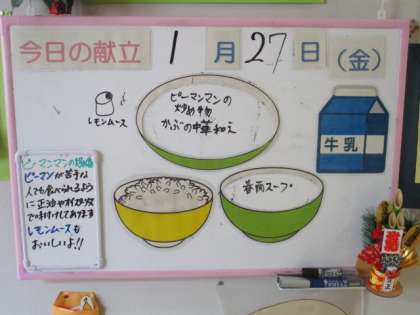 今日の献立 1月27日(金)
レモンムース
ピーマンマンの
炒め物
かぶの中華和え
牛乳
春雨スープ
ピーマンマンの炒め物
ピーマンが苦手な
人でも食べられるよう
レモンムースも
おいしいよ!!